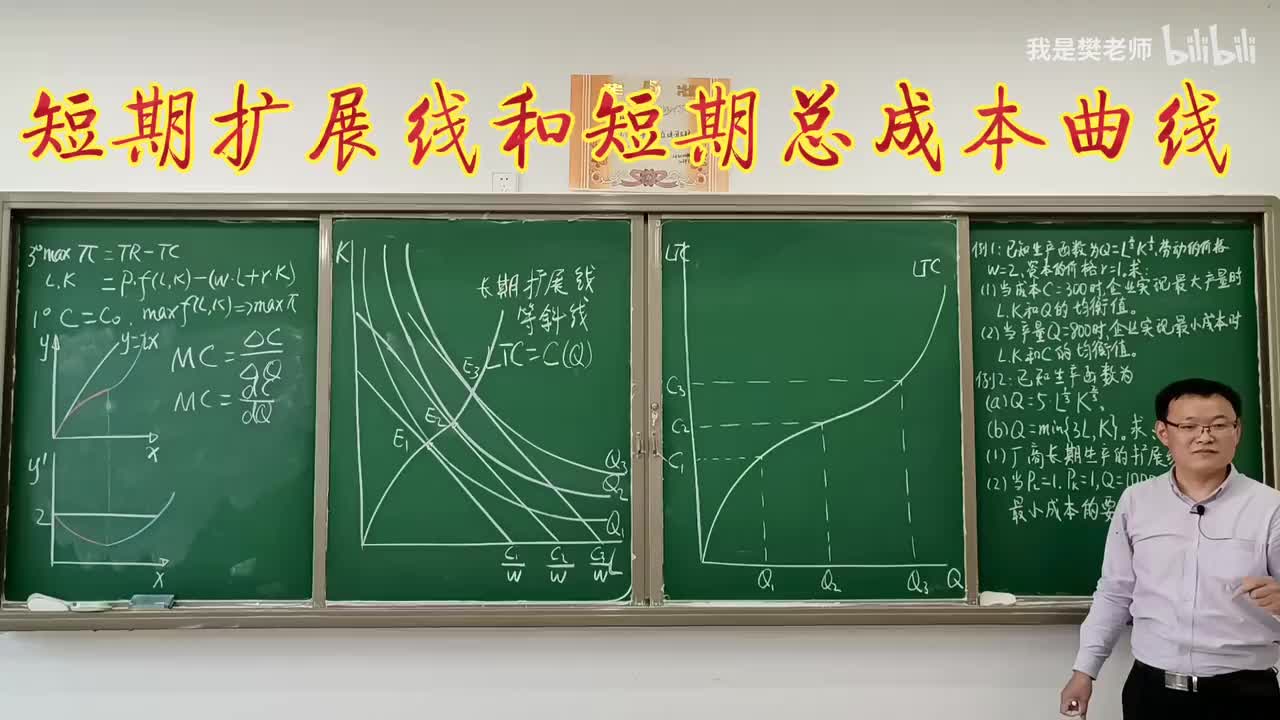 我是樊老师 bilibili
短期扩展线和短期总成本曲线
3° max π = TR - TC
L.K = P·f(L,K) - (w·L + r·K)
1° C = C₀. max f(L,K) => max π
y
y=2x
x
MC = ΔC/ΔQ
MC = dC/dQ
y'
2
x
K
长期扩展线
等斜线
LTC = C(Q)
E₃
E₂
E₁
Q₃
Q₂
Q₁
C₁/W C₂/W C₃/W L
LTC
LTC
C₃
C₂
C₁
Q₁ Q₂ Q₃ Q
W=2,资本的价格r=1,求:
(1)当成本C=300时,企业实现最大产量时
L.K和Q的均衡值。
(2)当产量Q=800时,企业实现最小成本时
L.K和C的均衡值。
例2:已知生产函数为
(b)Q=min{3L,K}。求:
(1)厂商长期生产的扩展
(2)当PL=1.PK=1,Q=1000
最小成本的要